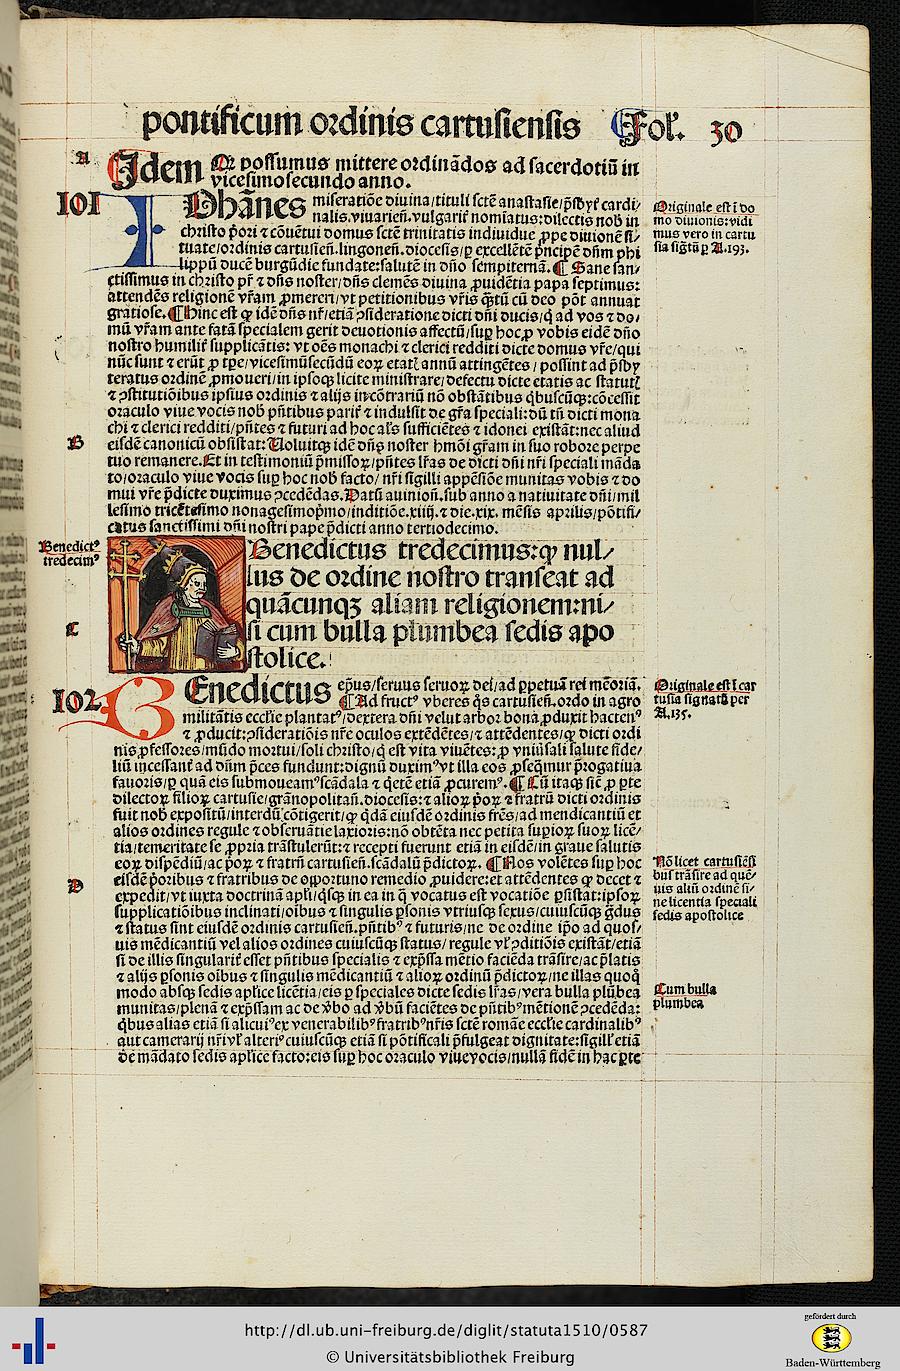 pontificum ordinis cartusiensis Fol. 30
A
Idem Qꝛ possumus mittere ordinãdos ad sacerdotiũ in
vicesimosecundo anno.
101
IOhãnes miseratiõe diuina/tituli sctẽ anastasie/p̃sbyt̃ cardi-
nalis.viuarieñ.vulgarit̃ nomĩatus:dilectis nob̃ in
christo p̃ori ⁊ cõuẽtui domus sctẽ trinitatis indiuidue ꝓpe diuionẽ si/
tuate/ordinis cartusieñ.lingoneñ.diocesis/ꝑ excellẽtẽ p̃ncipẽ dñm phi
lippũ ducẽ burgũdie fundate:salutẽ in dño sempiternã. ¶ Sane san/
ctissimus in christo pr̃ ⁊ dñs noster/dñs clemẽs diuina ꝓuidẽtia papa septimus:
attendẽs religionẽ vr̃am ꝓmereri/vt petitionibus vr̃is q̃tũ cũ deo põt annuat
gratiose. ¶ Hinc est ꝙ idẽ dñs nr̃/etiã ꝯsideratione dicti dñi ducis/q̃ ad vos ⁊ do/
mũ vr̃am ante fatã specialem gerit deuotionis affectũ/suꝑ hoc ꝓ vobis eidẽ dño
nostro humilit̃ supplicãtis: vt oẽs monachi ⁊ clerici redditi dicte domus vr̃e/qui
nũc sunt ⁊ erũt ꝓ tp̃e/vicesimũsecũdũ eoꝝ etat̃ annũ attingẽtes/possint ad p̃sby
teratus ordinẽ ꝓmoueri/in ipsoqꝫ licite ministrare/defectu dicte etatis ac statut̃
⁊ ꝯstitutiõibus ipsius ordinis ⁊ alijs in cõtrariũ nõ obstãtibus q̃buscũqꝫ:cõcessit
oraculo viue vocis nob̃ p̃ntibus parit̃ ⁊ indulsit de gr̃a speciali:dũ tñ dicti mona
chi ⁊ clerici redditi/p̃ntes ⁊ futuri ad hoc al̃s sufficiẽtes ⁊ idonei existãt:nec aliud
B
eisdẽ canonicũ obsistat: Uoluitqꝫ idẽ dñs noster hm̃õi gr̃am in suo robore perpe
tuo remanere.Et in testimoniũ p̃missoꝝ/p̃ntes lr̃as de dicti dñi nr̃i speciali mãda
to/oraculo viue vocis suꝑ hoc nob̃ facto/nr̃i sigilli appẽsiõe munitas vobis ⁊ do
mui vr̃e p̃dicte duximus ꝯcedẽdas.Datũ auinioñ.sub anno a natiuitate dñi/mil
lesimo tricẽtesimo nonagesimop̃mo/inditiõe.xiiij.⁊ die.xix. mẽsis aprilis/põtifi/
catus sanctissimi dñi nostri pape p̃dicti anno tertiodecimo.
Benedictꝰ
tredecimꝰ
Benedictus tredecimus:ꝙ nul/
lus de ordine nostro transeat ad
quãcunqꝫ aliam religionem:ni/
C
si cum bulla plumbea sedis apo
stolice.
102
BEnedictus ep̃us/seruus seruoꝝ dei/ad ꝑpetuã rei mẽoriã.
¶ Ad fructꝰ vberes q̃s cartusieñ.ordo in agro
militãtis eccl̃ie plantatꝰ/dextera dñi velut arbor bona ꝓduxit hactenꝰ
⁊ ꝓducit:ꝯsideratiõis nr̃e oculos extẽdẽtes/⁊ attẽdẽtes/ꝙ dicti ordi
nis ꝓfessores/mũdo mortui/soli christo/q̃ est vita viuẽtes:ꝓ vniũsali salute fide/
liũ incessant̃ ad dñm p̃ces fundunt:dignũ duximꝰvt illa eos ꝓseq̃mur p̃rogatiua
fauoris/ꝑ quã eis submoueamꝰscãdala ⁊ q̃etẽ etiã ꝓcuremꝰ. ¶ Cũ itaqꝫ sic̃ ꝓ ꝑte
dilectoꝝ filioꝝ cartusie/gr̃anopolitañ.diocesis:⁊ alioꝝ p̃oꝝ ⁊ fratrũ dicti ordinis
fuit nob̃ expositũ/interdũ cõtigerit/ꝙ q̃dã eiusdẽ ordinis fr̃es/ad mendicantiũ et
alios ordines regule ⁊ obseruãtie laxioris:nõ obtẽta nec petita suꝑioꝝ suoꝝ licẽ/
tia/temeritate se ꝓpria trãstulerũt:⁊ recepti fuerunt etiã in eisdẽ/in graue salutis
eoꝝ dispẽdiũ/ac p̃oꝝ ⁊ fratrũ cartusieñ.scãdalũ p̃dictoꝝ. ¶ Nos volẽtes suꝑ hoc
D
eisdẽ p̃oribus ⁊ fratribus de oportuno remedio ꝓuidere:et attẽdentes ꝙ decet ⁊
expedit/vt iuxta doctrinã apl̃i/q̃sqꝫ in ea in q̃ vocatus est vocatiõe ꝑsistat:ipsoꝝ
supplicatiõibus inclinati/oĩbus ⁊ singulis ꝑsonis vtriusqꝫ sexus/cuiuscũqꝫ g̃dus
⁊ status sint eiusdẽ ordinis cartusieñ.p̃ntibꝰ ⁊ futuris/ne de ordine ip̃o ad quos/
uis mẽdicantiũ vel alios ordines cuiuscũqꝫ status/regule vl̃ ꝯditiõis existãt/etiã
si de illis singularit̃ esset p̃ntibus specialis ⁊ exp̃ssa mẽtio faciẽda trãsire/ac p̃latis
⁊ alijs ꝑsonis oĩbus ⁊ singulis mẽdicantiũ ⁊ alioꝝ ordinũ p̃dictoꝝ/ne illas quoq̃
modo absqꝫ sedis apl̃ice licẽtia/eis ꝑ speciales dicte sedis lr̃as/vera bulla plũbea
munitas/plenã ⁊ exp̃ssam ac de ṽbo ad ṽbũ faciẽtes de p̃ntibꝰmẽtionẽ ꝯcedẽda:
q̃bus alias etiã si alicuiꝰex venerabilibꝰfratribꝰnr̃is sctẽ romãe eccl̃ie cardinalibꝰ
aut camerarij nr̃i vl̃ alteriꝰcuiuscũqꝫ etiã si põtificali p̃fulgeat dignitate:sigill̃ etiã
de mãdato sedis apl̃ice facto:eis suꝑ hoc oraculo viue vocis/nullã fidẽ in hac ꝑte
Originale est ĩ do
mo diuionis:vidi
mus vero in cartu
sia sig̃tũ ꝑ A.193.
Originale est ĩ car
tusia signatũ per
A.135.
Nõ licet cartusiẽsi
bus trãsire ad quẽ/
uis aliũ ordinẽ si/
ne licentia speciali
sedis apostolice
Cum bulla
plumbea
http://dl.ub.uni-freiburg.de/diglit/statuta1510/0587
© Universitätsbibliothek Freiburg
gefördert durch
Baden-Württemberg